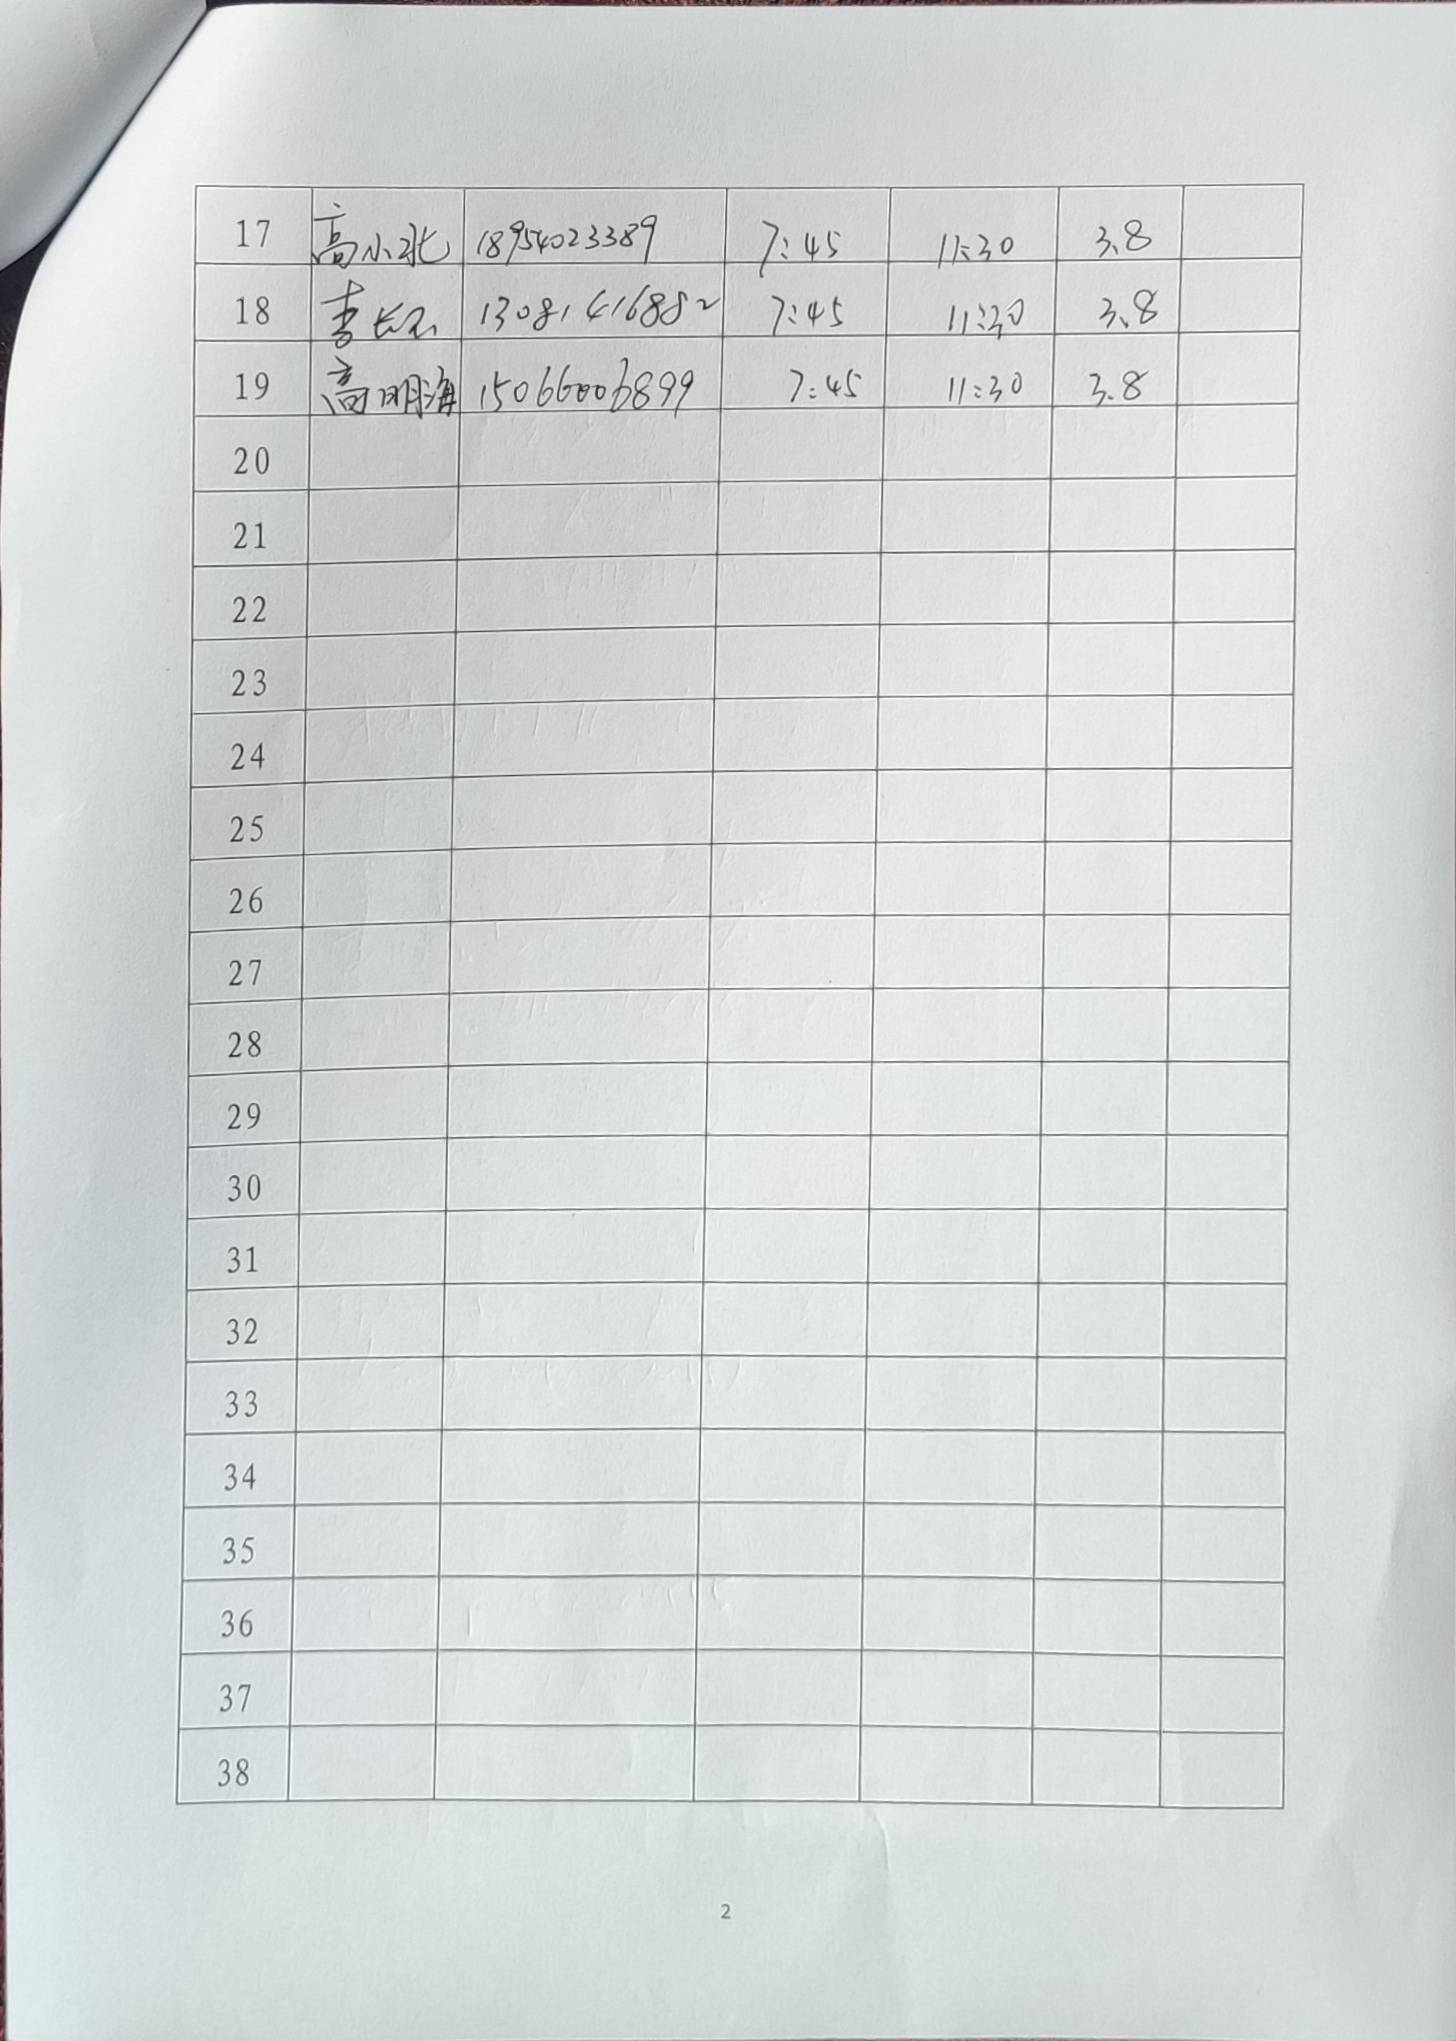 17 高小北 18954023389 7:45 11:30 3.8
18 李长江 13081416882 7:45 11:30 3.8
19 高明海 15066006899 7:45 11:30 3.8
20
21
22
23
24
25
26
27
28
29
30
31
32
33
34
35
36
37
38
2